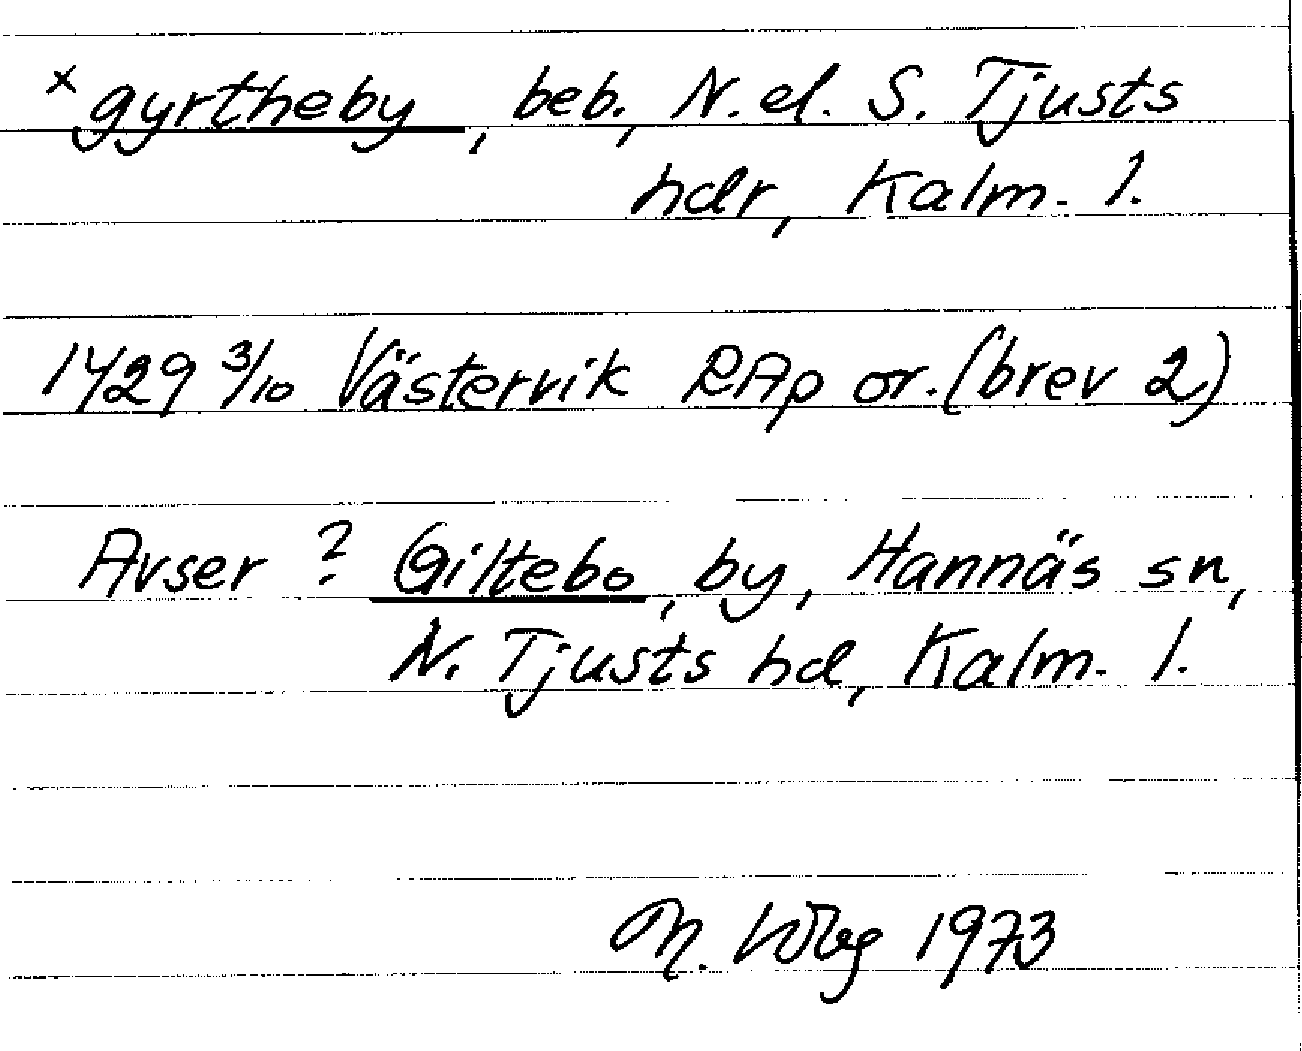 x gyrtheby, beb., N. el. S. Tjusts
hdr, Kalm. l.
1429 3/10 Västervik RAp or. (brev 2)
Avser ? Giltebo, by, Hannäs sn,
N. Tjusts hd, Kalm. l.
M. 1973